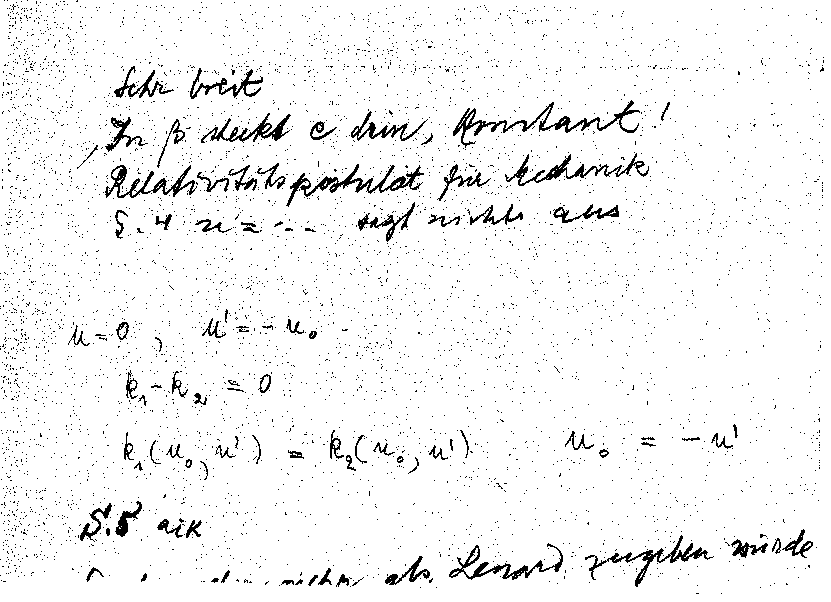 Sehr breit
In β steckt c drin, Konstant!
Relativitätspostulat für Mechanik
S. 4 u = ... sagt nichts aus
u = 0, u' = -u₀
k₁ - k₂ = 0
k₁(u₀, u') = k₂(u₀, u') u₀ = -u'
S. 5
als Lenard zugeben würde